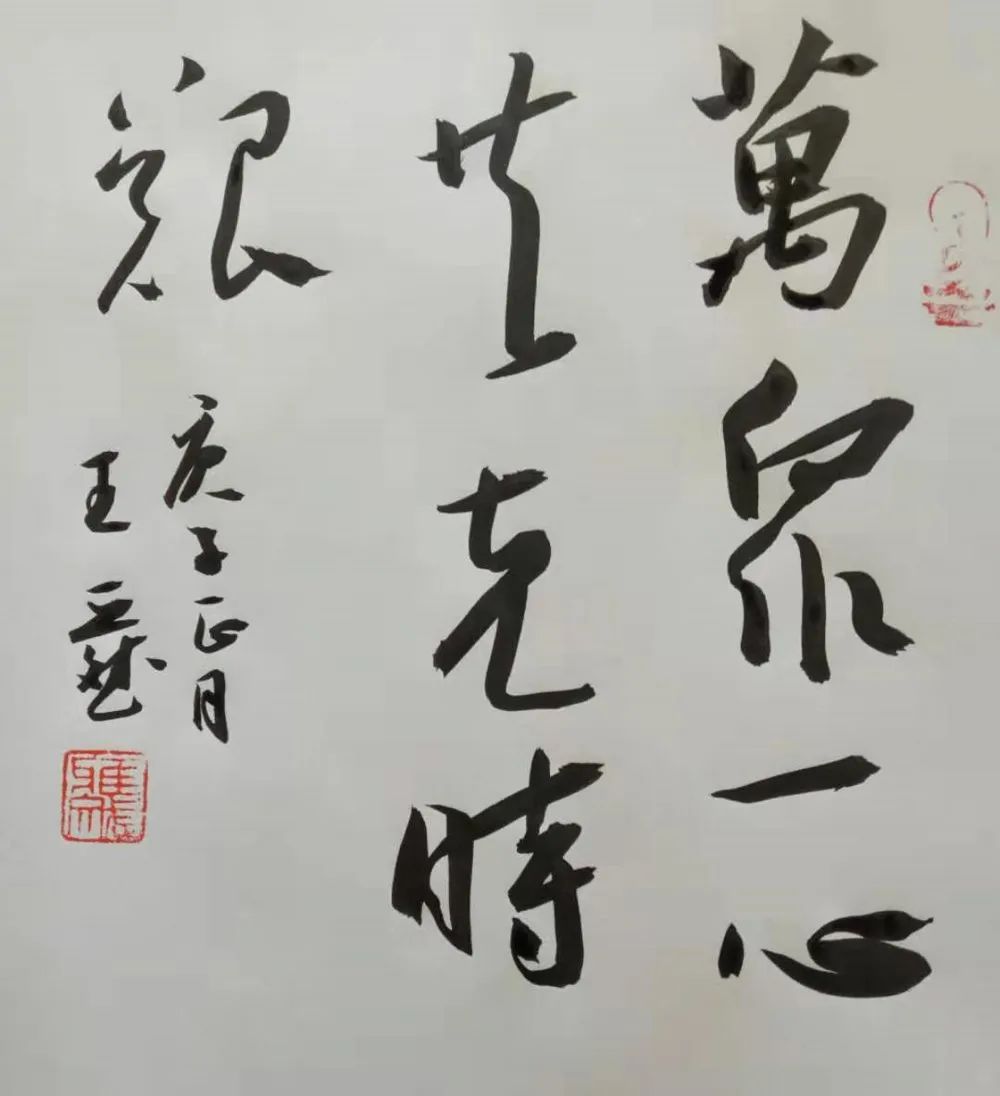 萬衆一心
共克時
艱
庚子正月
王